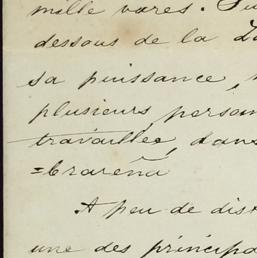 mille vares. Su
dessous de la La
sa puissance,
plusieurs person
travaillée, dans
=brareña
A peu de dist
une des principa